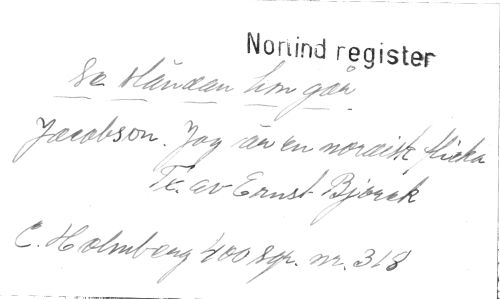 Nortind register
Se hur hon går
Jacobson. Jag är en nordisk flicka
Tx. av Ernst Björck
C. Holmberg 400 sgr. nr. 318